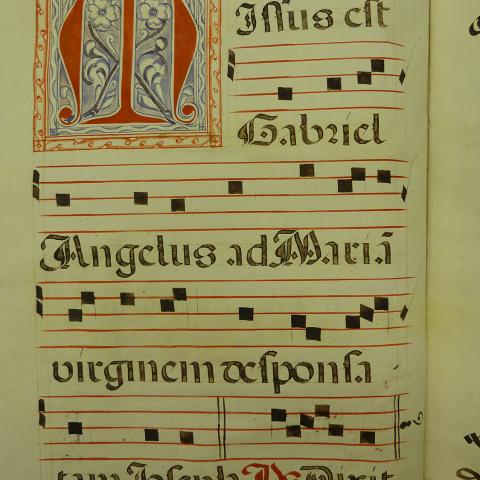 Missus est
Gabriel
Angelus ad Mariã
virginem desponsa
tam Joseph Ps Dixit